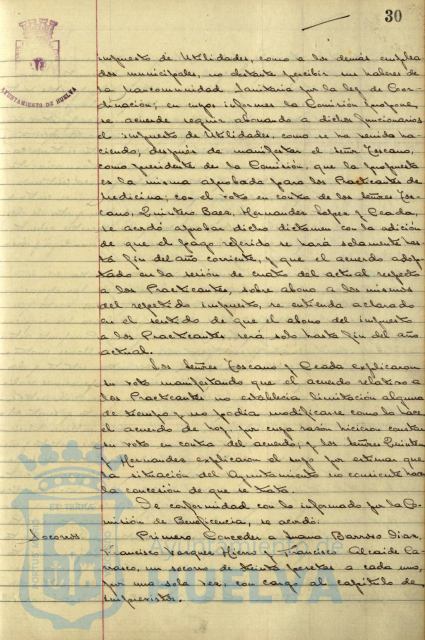 30
AYUNTAMIENTO DE HUELVA
impuesto de Utilidades, como a los demás emplea
dos municipales, no obstante percibir sus haberes de
la Mancomunidad Sanitaria por la ley de Coor-
dinación; en cuyos informes la Comisión propone,
se acuerde seguir abonando a dichos funcionarios
el impuesto de Utilidades, como se ha venido ha-
ciendo; después de manifestar el señor Toscano,
como presidente de la Comisión, que la propuesta
es la misma aprobada para los Practicantes de
Medicina; con el voto en contra de los señores Tos-
cano, Quintero Baez, Hernandez Lopez y Ceada,
se acordó aprobar dicho dictamen con la adición
de que el pago referido se hará solamente has-
ta fin del año corriente, y que el acuerdo adop-
tado en la sesión de cuatro del actual respecto
a los Practicantes, sobre abono a los mismos
del repetido impuesto, se entienda aclarado
en el sentido de que el abono del impuesto
a los Practicantes será solo hasta fin del año
actual.
Los señores Toscano y Ceada explicaron
su voto manifestando que el acuerdo relativo a
los Practicantes no establecía limitación alguna
de tiempo y no podía modificarse como lo hace
el acuerdo de hoy, por cuya razón hicieron constar
su voto en contra del acuerdo; y los señores Quintero
y Hernandez explicaron el suyo por estimar que
la situación del Ayuntamiento no consiente
la concesión de que se trata.
De conformidad con lo informado por la Co-
misión de Beneficencia, se acordó:
Socorros.
Primero. Conceder a Juana Barroso Diaz,
Francisco Vazquez Hierro y Francisco Alcaide Ca-
rrasco, un socorro de treinta pesetas a cada uno,
por una sola vez, con cargo al capítulo de
imprevistos.
HUELVA